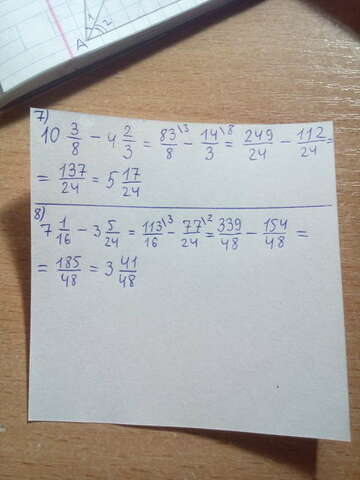 A 1 2
7)
10 3/8 - 4 2/3 = 83\3/8 - 14\8/3 = 249/24 - 112/24 =
= 137/24 = 5 17/24
8)
7 1/16 - 3 5/24 = 113\3/16 - 77\2/24 = 339/48 - 154/48 =
= 185/48 = 3 41/48